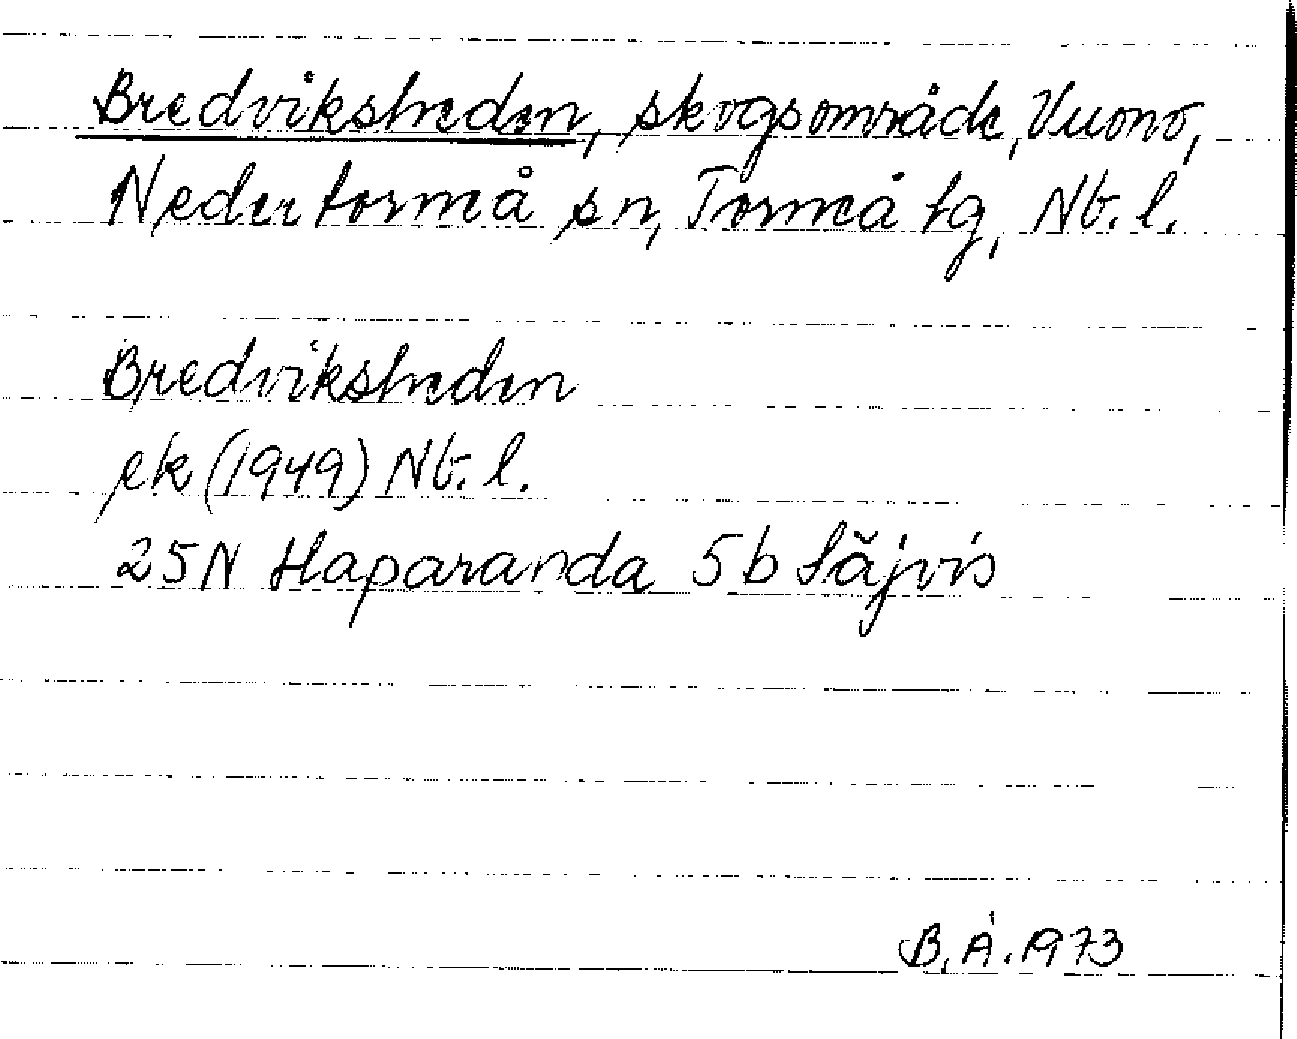 Bredviksheden, skogsområde, Vuono,
Nedertorneå sn, Torneå tg, Nb. l.
Bredviksheden
ek (1949) Nb. l.
25N Haparanda 5b Säjvis
B.Å. 1973